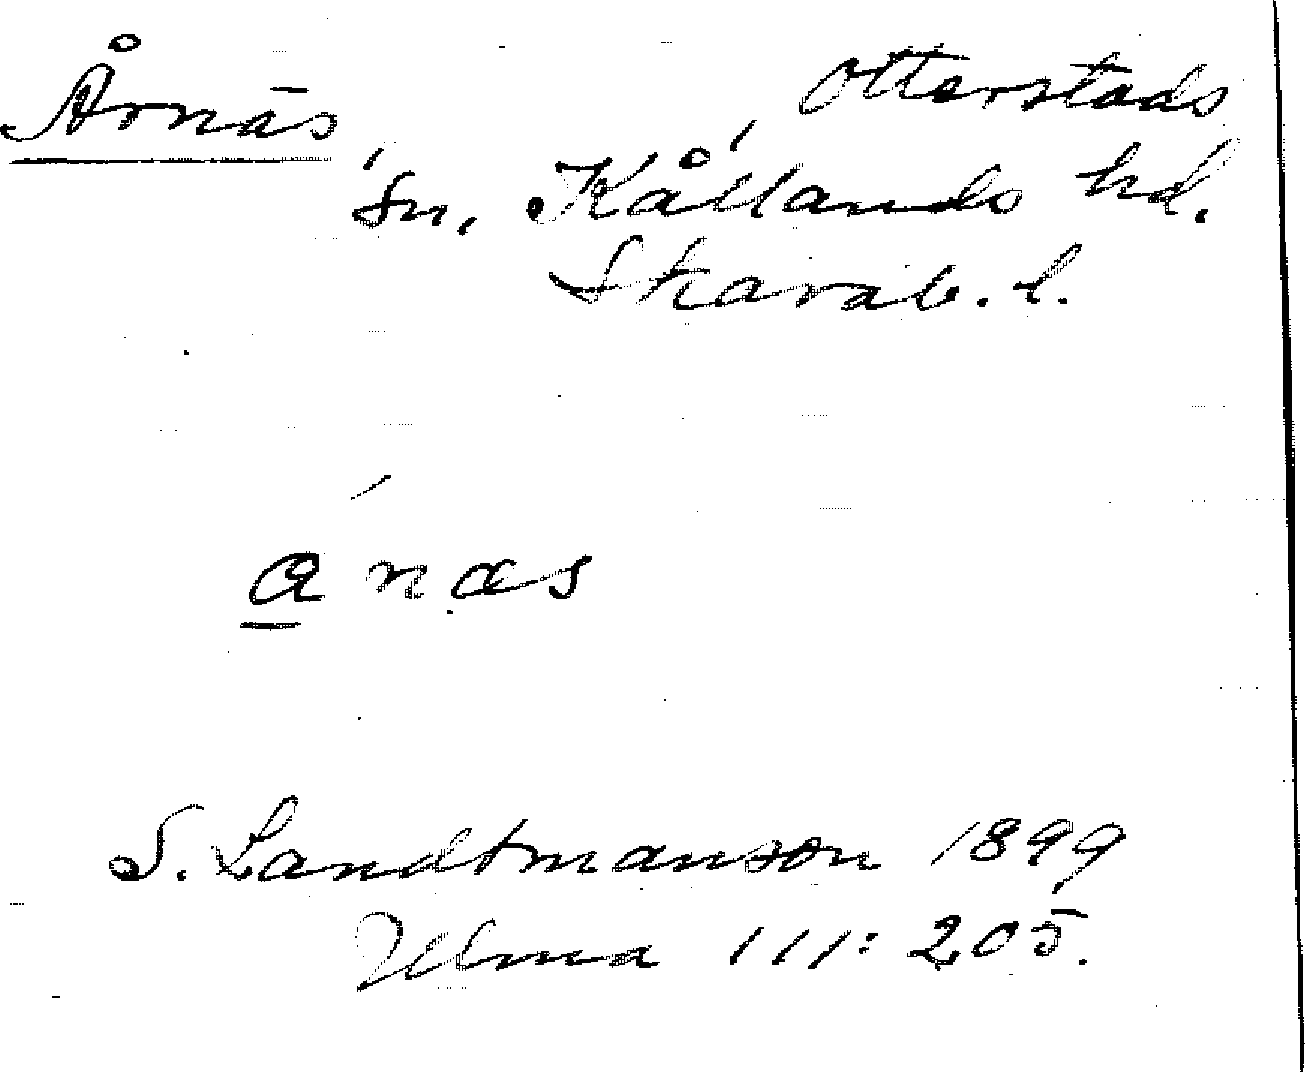 Årnäs, Otterstads
sn., Kållands hd.
Skarab. l.
a´ næs
S. Landtmanson 1899
Ulma 111:205.